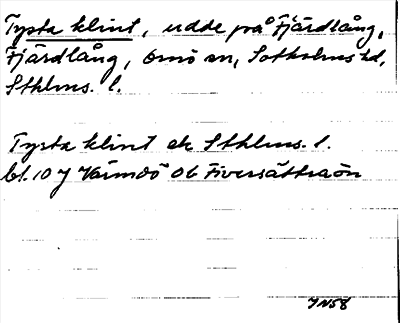 Tysta klint, udde på Fjärdlång,
Fjärdlång, Ornö sn, Sotholms hd,
Sthlms. l.
Tysta klint ek Sthlms. l.
bl. 10 J Värmdö Ob Fiversättraön
JN58